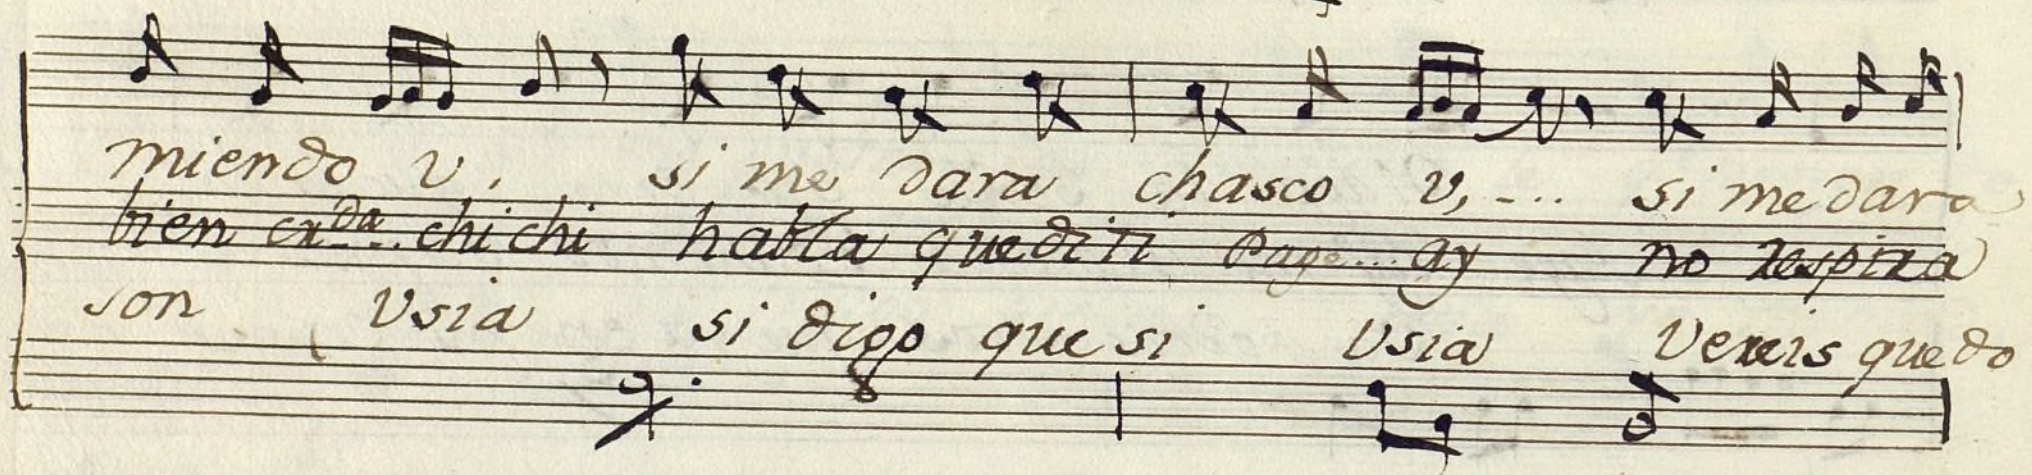 miendo v. si me dara chasco v, -... si me dara
bien cr.da chi chi habla quediti Papa... ay no respira
son Vsia si digo que si Vsia Vereis que do